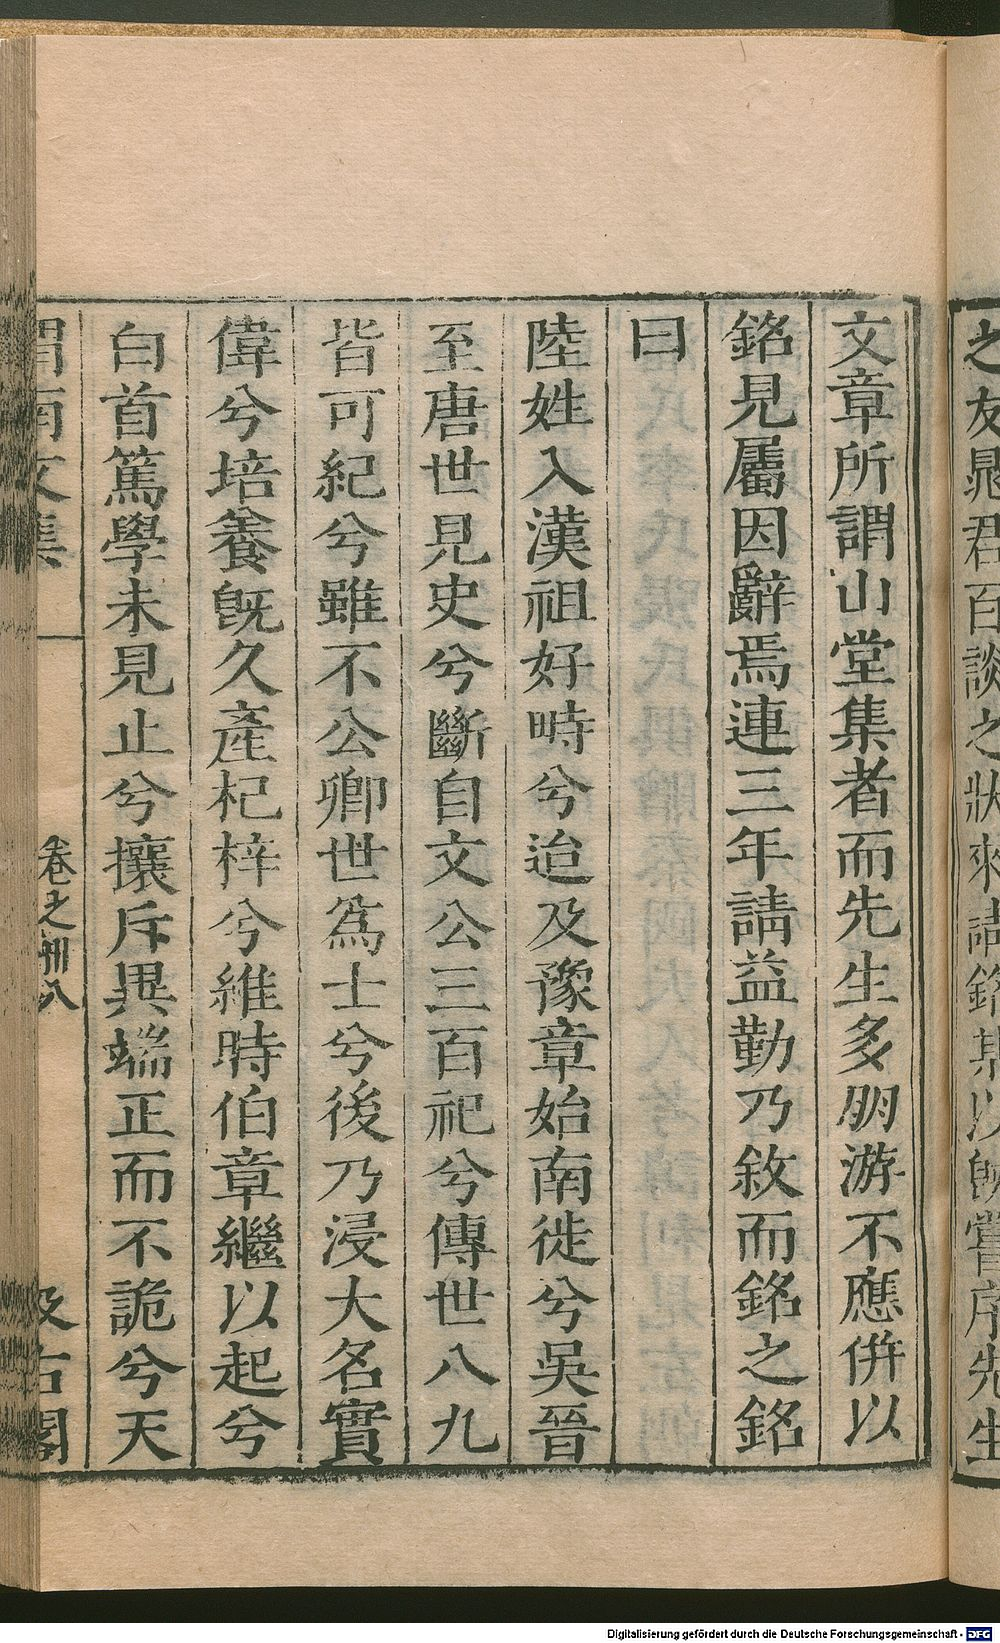 之友晁君百談之狀來請銘某以旣嘗序先生
文章所謂山堂集者而先生多朋游不應併以
銘見屬因辭焉連三年請益勤乃敘而銘之銘
曰
陸姓入漢祖好時兮迨及豫章始南徙兮吳晉
至唐世見史兮斷自文公三百祀兮傳世八九
皆可紀兮雖不公卿世爲士兮後乃浸大名實
偉兮培養旣久產杞梓兮維時伯章繼以起兮
白首篤學未見止兮攘斥異端正而不詭兮天
渭南文集
卷之卅八
汲古閣
Digitalisierung gefördert durch die Deutsche Forschungsgemeinschaft - DFG